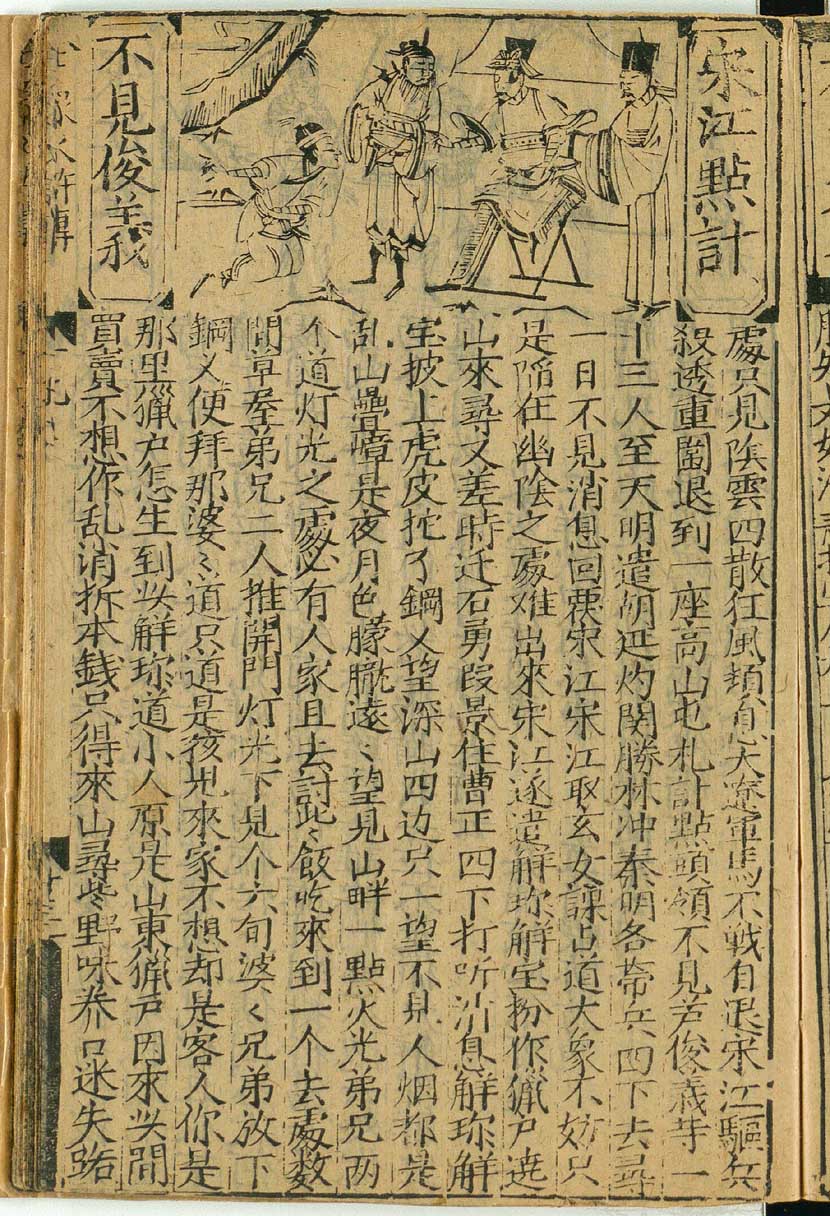 宋江點計
不見俊義
處只見陰雲四散狂風頓息大遼軍馬不战自退宋江驅兵
殺透重圍退到一座高山屯札計點頭領不見芦俊義等一
十三人至天明遣胡延灼関勝林冲秦明各帶兵四下去尋
一日不見消息回覆宋江宋江取玄女課占道大象不妨只
是陷在幽陰之處难出來宋江遂遣解珎解宝扮作獵户遶
山來尋又差時迁石勇段景住曹正四下打听消息解珎解
宝披上虎皮拕了鋼叉望深山四边只一望不見人烟都是
乱山疊嶂是夜月色朦朧遠〻望見山畔一點火光弟兄两
个道灯光之處必有人家且去討些飯吃來到一个去處数
間草屋弟兄二人推開門灯光下見个六旬婆〻兄弟放下
鋼叉便拜那婆〻道只道是孩児來家不想却是客人你是
那里獵户怎生到此解珎道小人原是山東獵户因來此間
買賣不想作乱消折本錢只得來山尋些野味养口迷失路